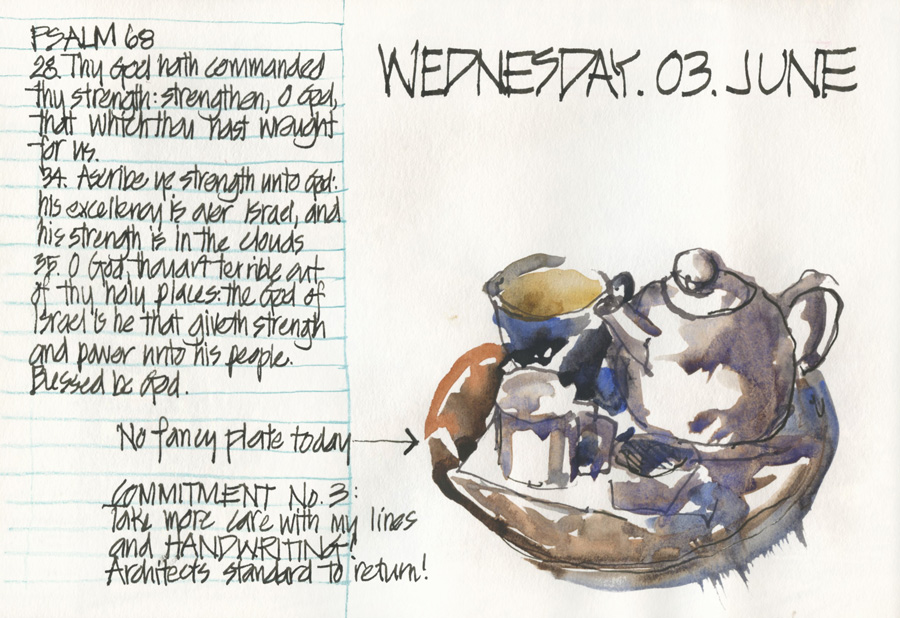 PSALM 68
28. Thy God hath commanded
thy strength: strengthen, O God,
that which thou hast wrought
for us.
34. Ascribe ye strength unto God:
his excellency is over Israel, and
his strength is in the clouds
35. O God, thou art terrible out
of thy holy places: the God of
Israel is he that giveth strength
and power unto his people.
Blessed be God.
No fancy plate today
COMMITMENT No. 3:
Take more care with my lines
and HANDWRITING!
Architects standard to return!
WEDNESDAY. 03. JUNE